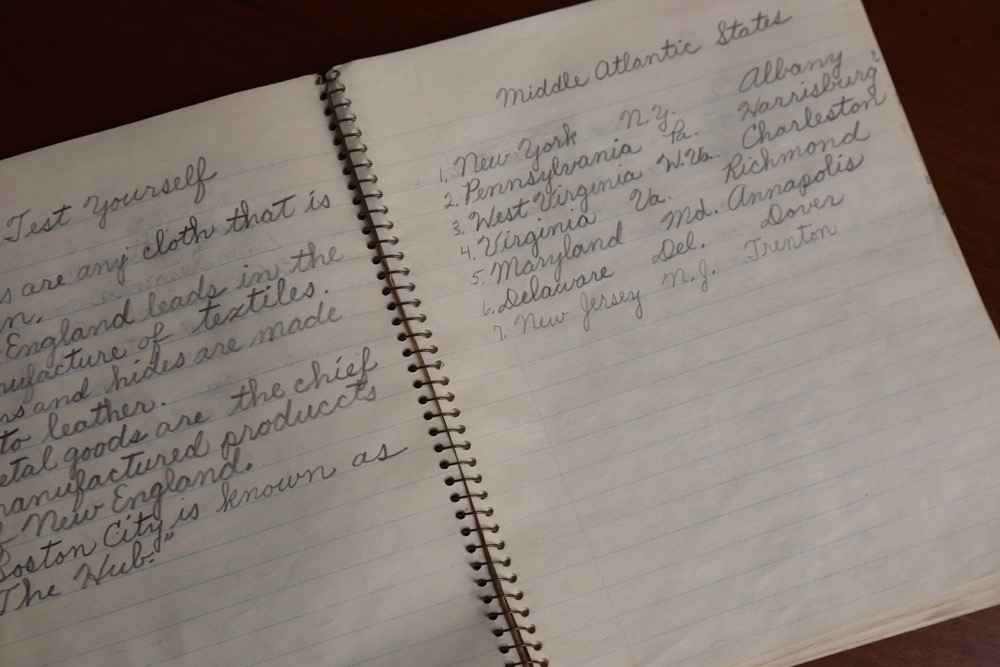 Test Yourself
s are any cloth that is
n.
England leads in the
ufacture of textiles.
ns and hides are made
to leather.
etal goods are the chief
manufactured produccts
New England.
Boston City is known as
The Hub."
Middle Atlantic States
1. New York N.Y. Albany
2. Pennsylvania Pa. Harrisburg
3. West Virginia W.Va. Charleston
4. Virginia Va. Richmond
5. Maryland Md. Annapolis
6. Delaware Del. Dover
7. New Jersey N.J. Trenton